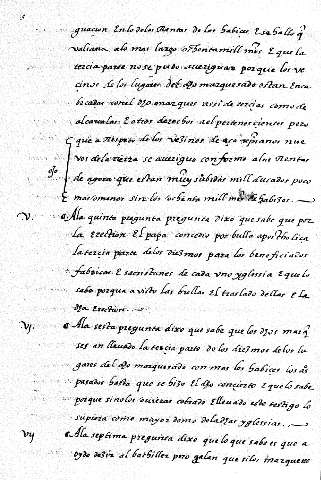 guacion En lo de los Rentas de los habices Ese hallo q̄
valian a lo mas largo ochenta mill mrs E que la
tercia parte no se pudo averiguar porque los ve
cinos de los lugares del dho marquesado estan Enca
beçados con el dho marques asi de tercias como de
alcavalas E otros derechos a el pertenecientes pero
que a Respeto de los vezinos de xpianos nue
vos de la tierra se averiguo conforme a las Rentas
de agora que estan muy subidas mill ducados poco
mas o menos sin los ochenta mill mrs de habizes
V. A la quinta pregunta pregunta dixo que sabe que por
la Erection El papa concedio por bulla apostholica
la tercia parte de los diezmos para los beneficiados
fabricas E sacristanes de cada una yglessia E que lo
sabe porque a visto las bullas El traslado dellas E la
dha Erection
VI. A la sesta pregunta dixo que sabe que los dhos marq̄
ses an llevado la tercia parte de los diezmos de los lu
gares del dho marquesado con mas los habices los a͂s
pasados hasta que se hizo El dho concierto E que lo sabe
porque si no los ovieran cobrado E llevado este testigo lo
supiera como mayordomo de las dhas yglesias
VII A la septima pregunta dixo que lo que sabe es que a
oydo dezir al bachiller pero galan que si los marqueses